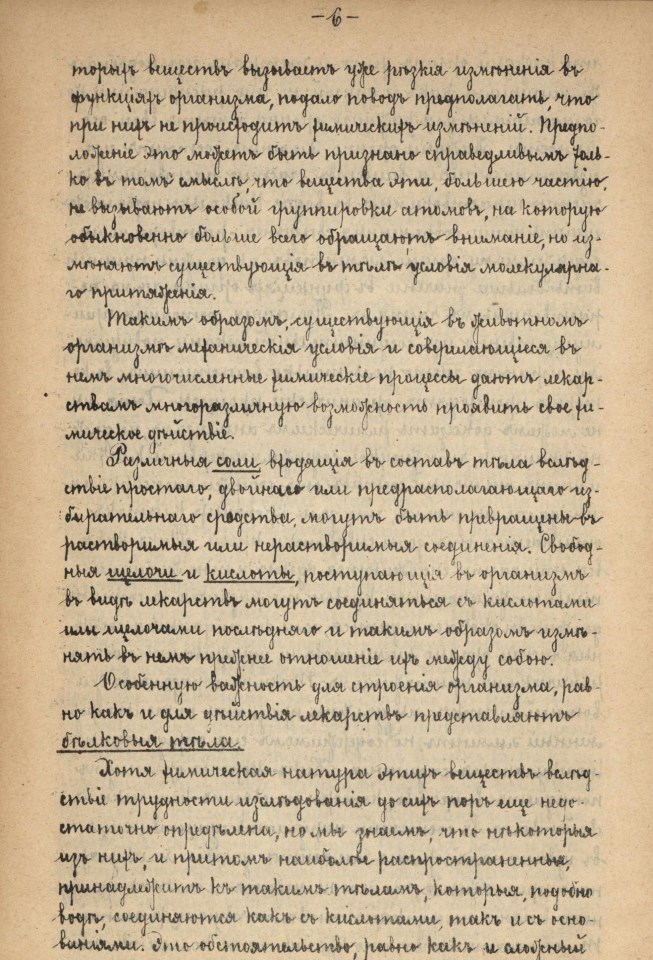 —6—
торыхъ веществъ вызываетъ уже рѣзкія измѣненія въ
функціяхъ организма, подало поводъ предполагать, что
при нихъ не происходитъ химическихъ измѣненій. Предпо-
ложеніе это можетъ быть признано справедливымъ толь-
ко въ томъ смыслѣ, что вещества эти, большею частію,
не вызываютъ особой группировки атомовъ, на которую
обыкновенно больше всего обращаютъ вниманіе, но из-
мѣняютъ существующія въ тѣлѣ условія молекулярна-
го притяженія.
Такимъ образомъ, существующія въ животномъ
организмѣ механическія условія и совершающіеся въ
немъ многочисленные химическіе процессы даютъ лекар-
ствамъ многоразличную возможность проявить свое хи-
мическое дѣйствіе.
Различныя соли, входящія въ составъ тѣла вслѣд-
ствіе простаго, двойнаго или предрасполагающаго из-
бирательнаго сродства, могутъ быть превращены въ
растворимыя или нерастворимыя соединенія. Свобод-
ныя щелочи и кислоты, поступающія въ организмъ
въ видѣ лекарствъ могутъ соединяться съ кислотами
или щелочами послѣдняго и такимъ образомъ измѣ-
нять въ немъ прежнее отношеніе ихъ между собою.
Особенную важность для строенія организма, рав-
но какъ и для дѣйствія лекарствъ представляютъ
бѣлковыя тѣла.
Хотя химическая натура этихъ веществъ вслѣд-
ствіе трудности изслѣдованія до сихъ поръ еще недо-
статочно опредѣлена, но мы знаемъ, что нѣкоторыя
изъ нихъ, и притомъ наиболѣе распространенныя,
принадлежитъ къ такимъ тѣламъ, которыя, подобно
водѣ, соединяются какъ съ кислотами, такъ и съ осно-
ваніями. Это обстоятельство, равно какъ и сложный